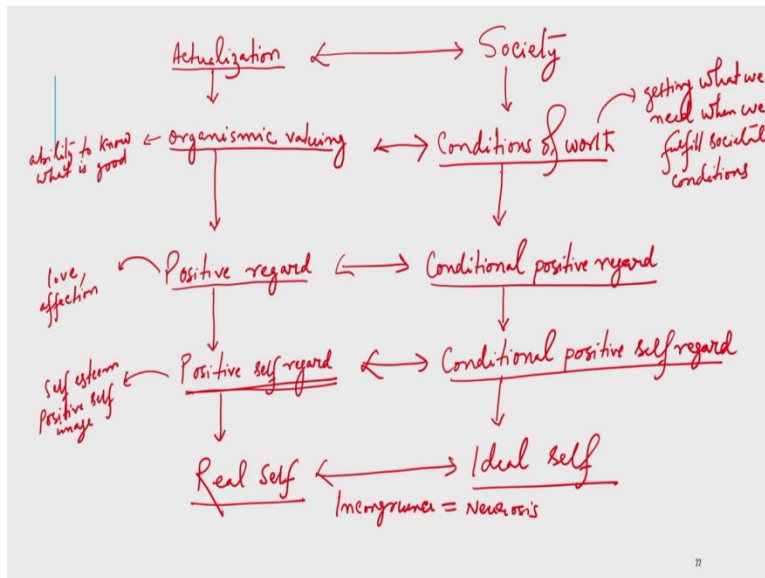 Actualization
Society
ability to know
what is good
organismic valuing
Conditions of worth
getting what we
need when we
fulfill societal
conditions
love,
affection
Positive regard
Conditional positive regard
Self esteem
Positive self
image
Positive self regard
Conditional positive self regard
Real self
Ideal self
Incongruence = Neurosis
77